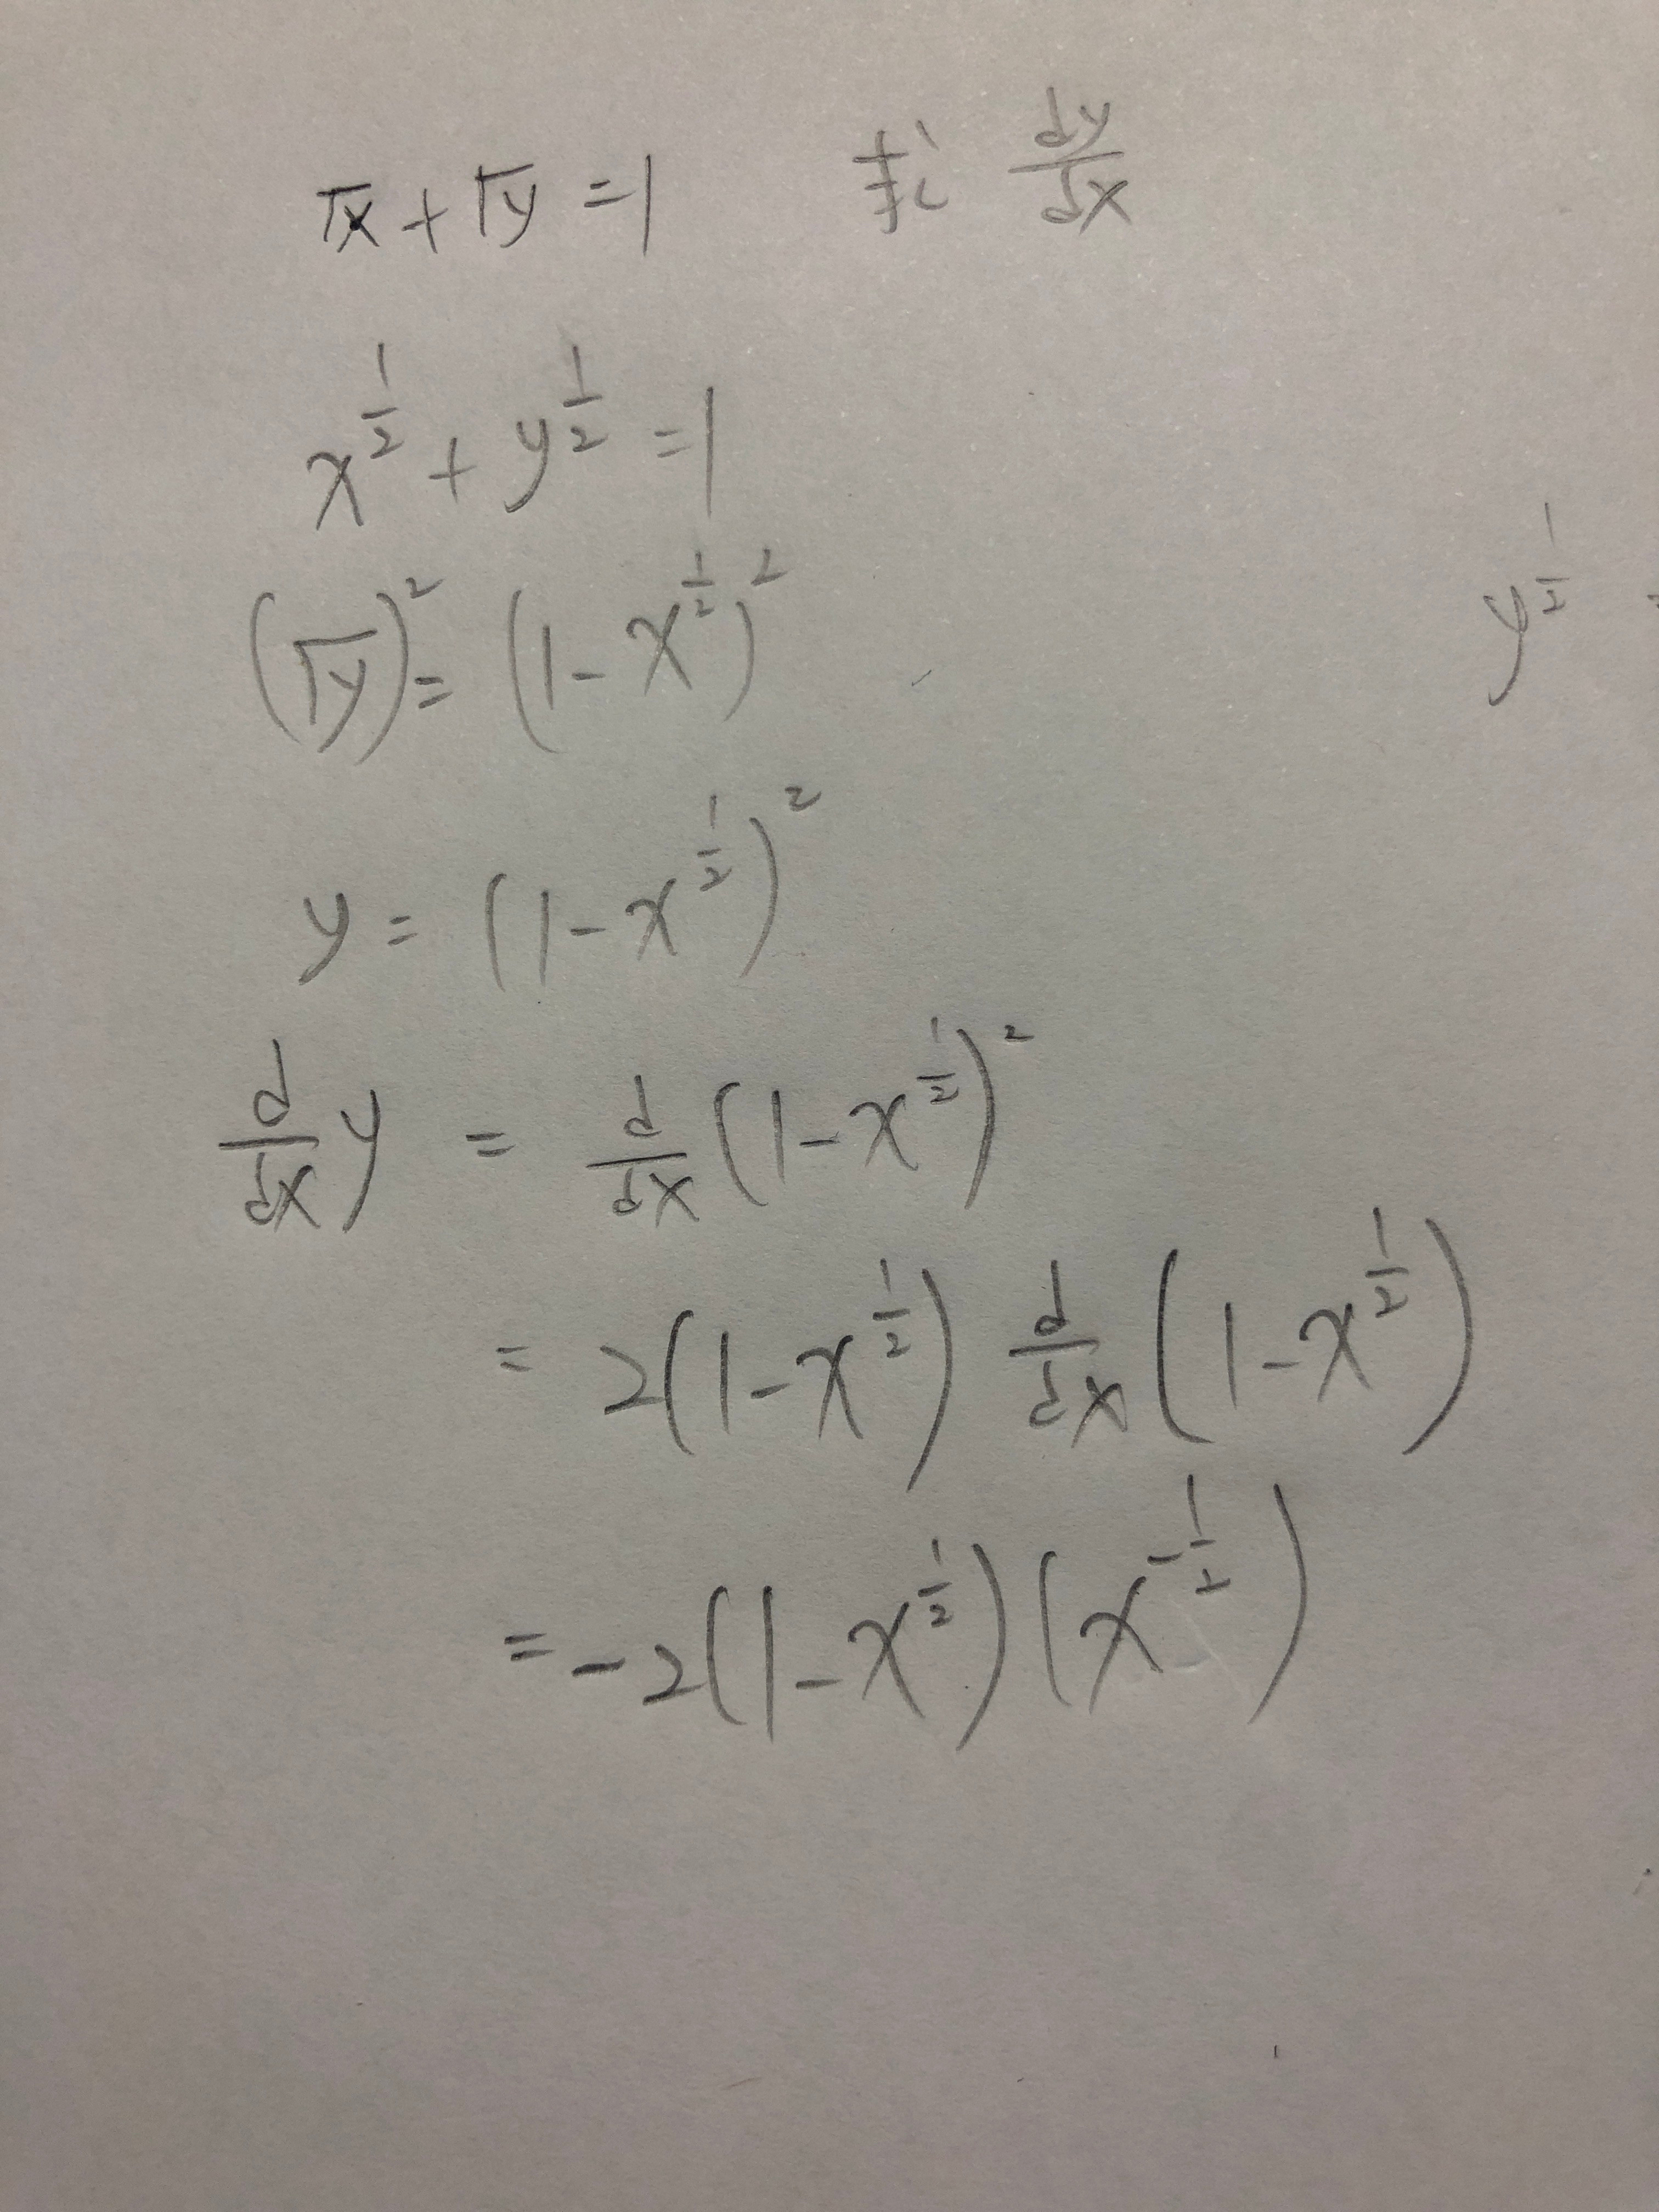 √x + √y = 1 求 dy/dx
x^(1/2) + y^(1/2) = 1
(√y)^2 = (1 - x^(1/2))^2
y^(1/2)
y = (1 - x^(1/2))^2
d/dx y = d/dx (1 - x^(1/2))^2
= 2(1 - x^(1/2)) d/dx (1 - x^(1/2))
= -2(1 - x^(1/2))(x^(-1/2))